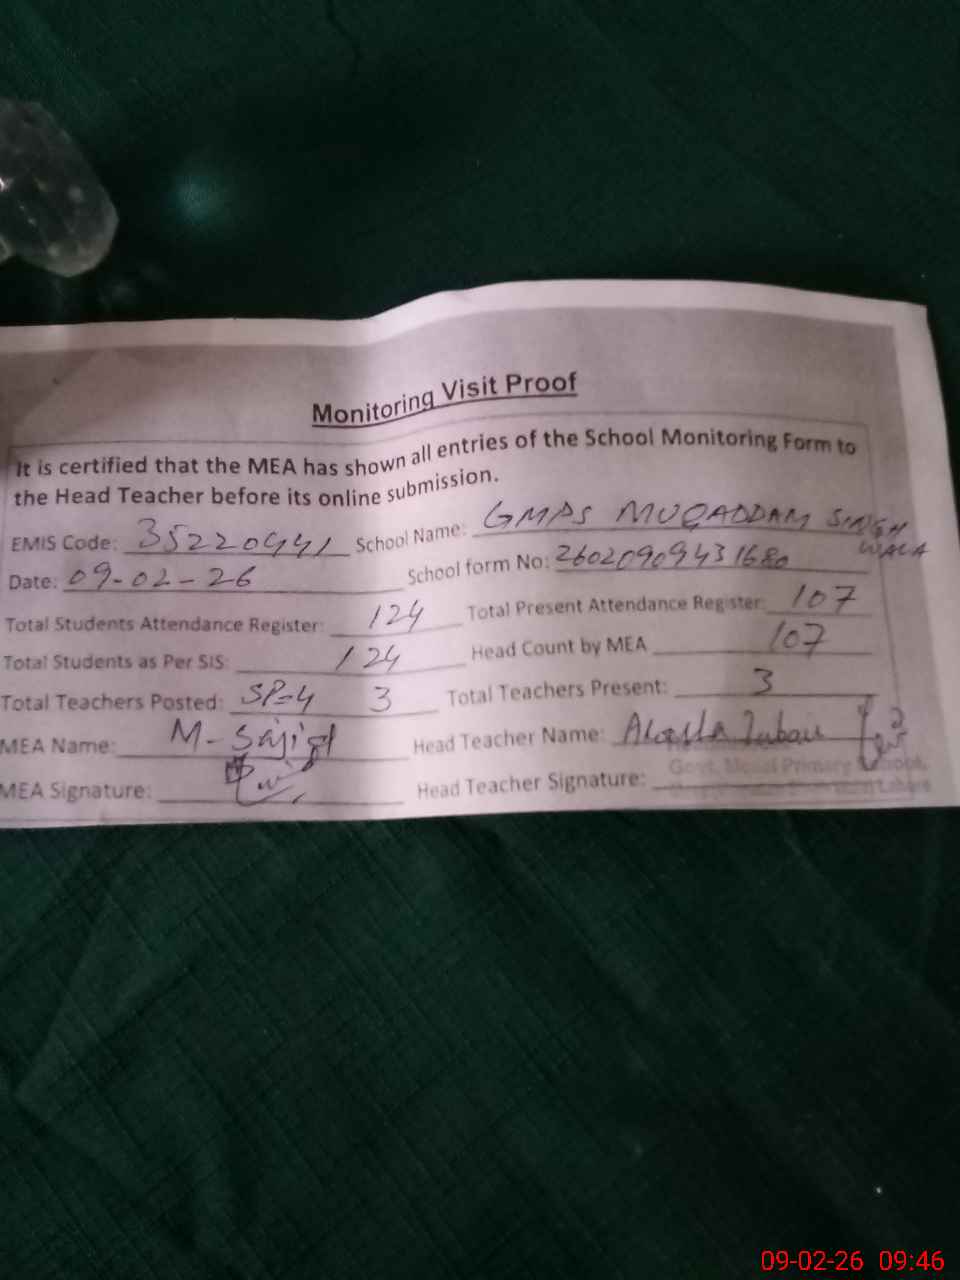 Monitoring Visit Proof
It is certified that the MEA has shown all entries of the School Monitoring Form to
the Head Teacher before its online submission.
EMIS Code: 35220441 School Name: GMPS MUQADDAM SINGH WALA
Date: 09-02-26 School form No: 26020909431680
Total Students Attendance Register: 124 Total Present Attendance Register: 107
Total Students as Per SIS: 124 Head Count by MEA 107
Total Teachers Posted: SP=4 3 Total Teachers Present: 3
MEA Name: M- Sajid Head Teacher Name:
MEA Signature: Head Teacher Signature:
Govt. Model Primary School,
Lahore
09-02-26 09:46